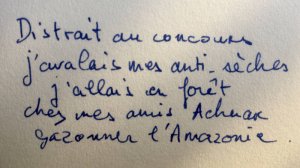 Distrait au concours
j'avalais mes anti-sèches
j'allais en forêt
chez mes amis Achuar
gazonner l'Amazonie.